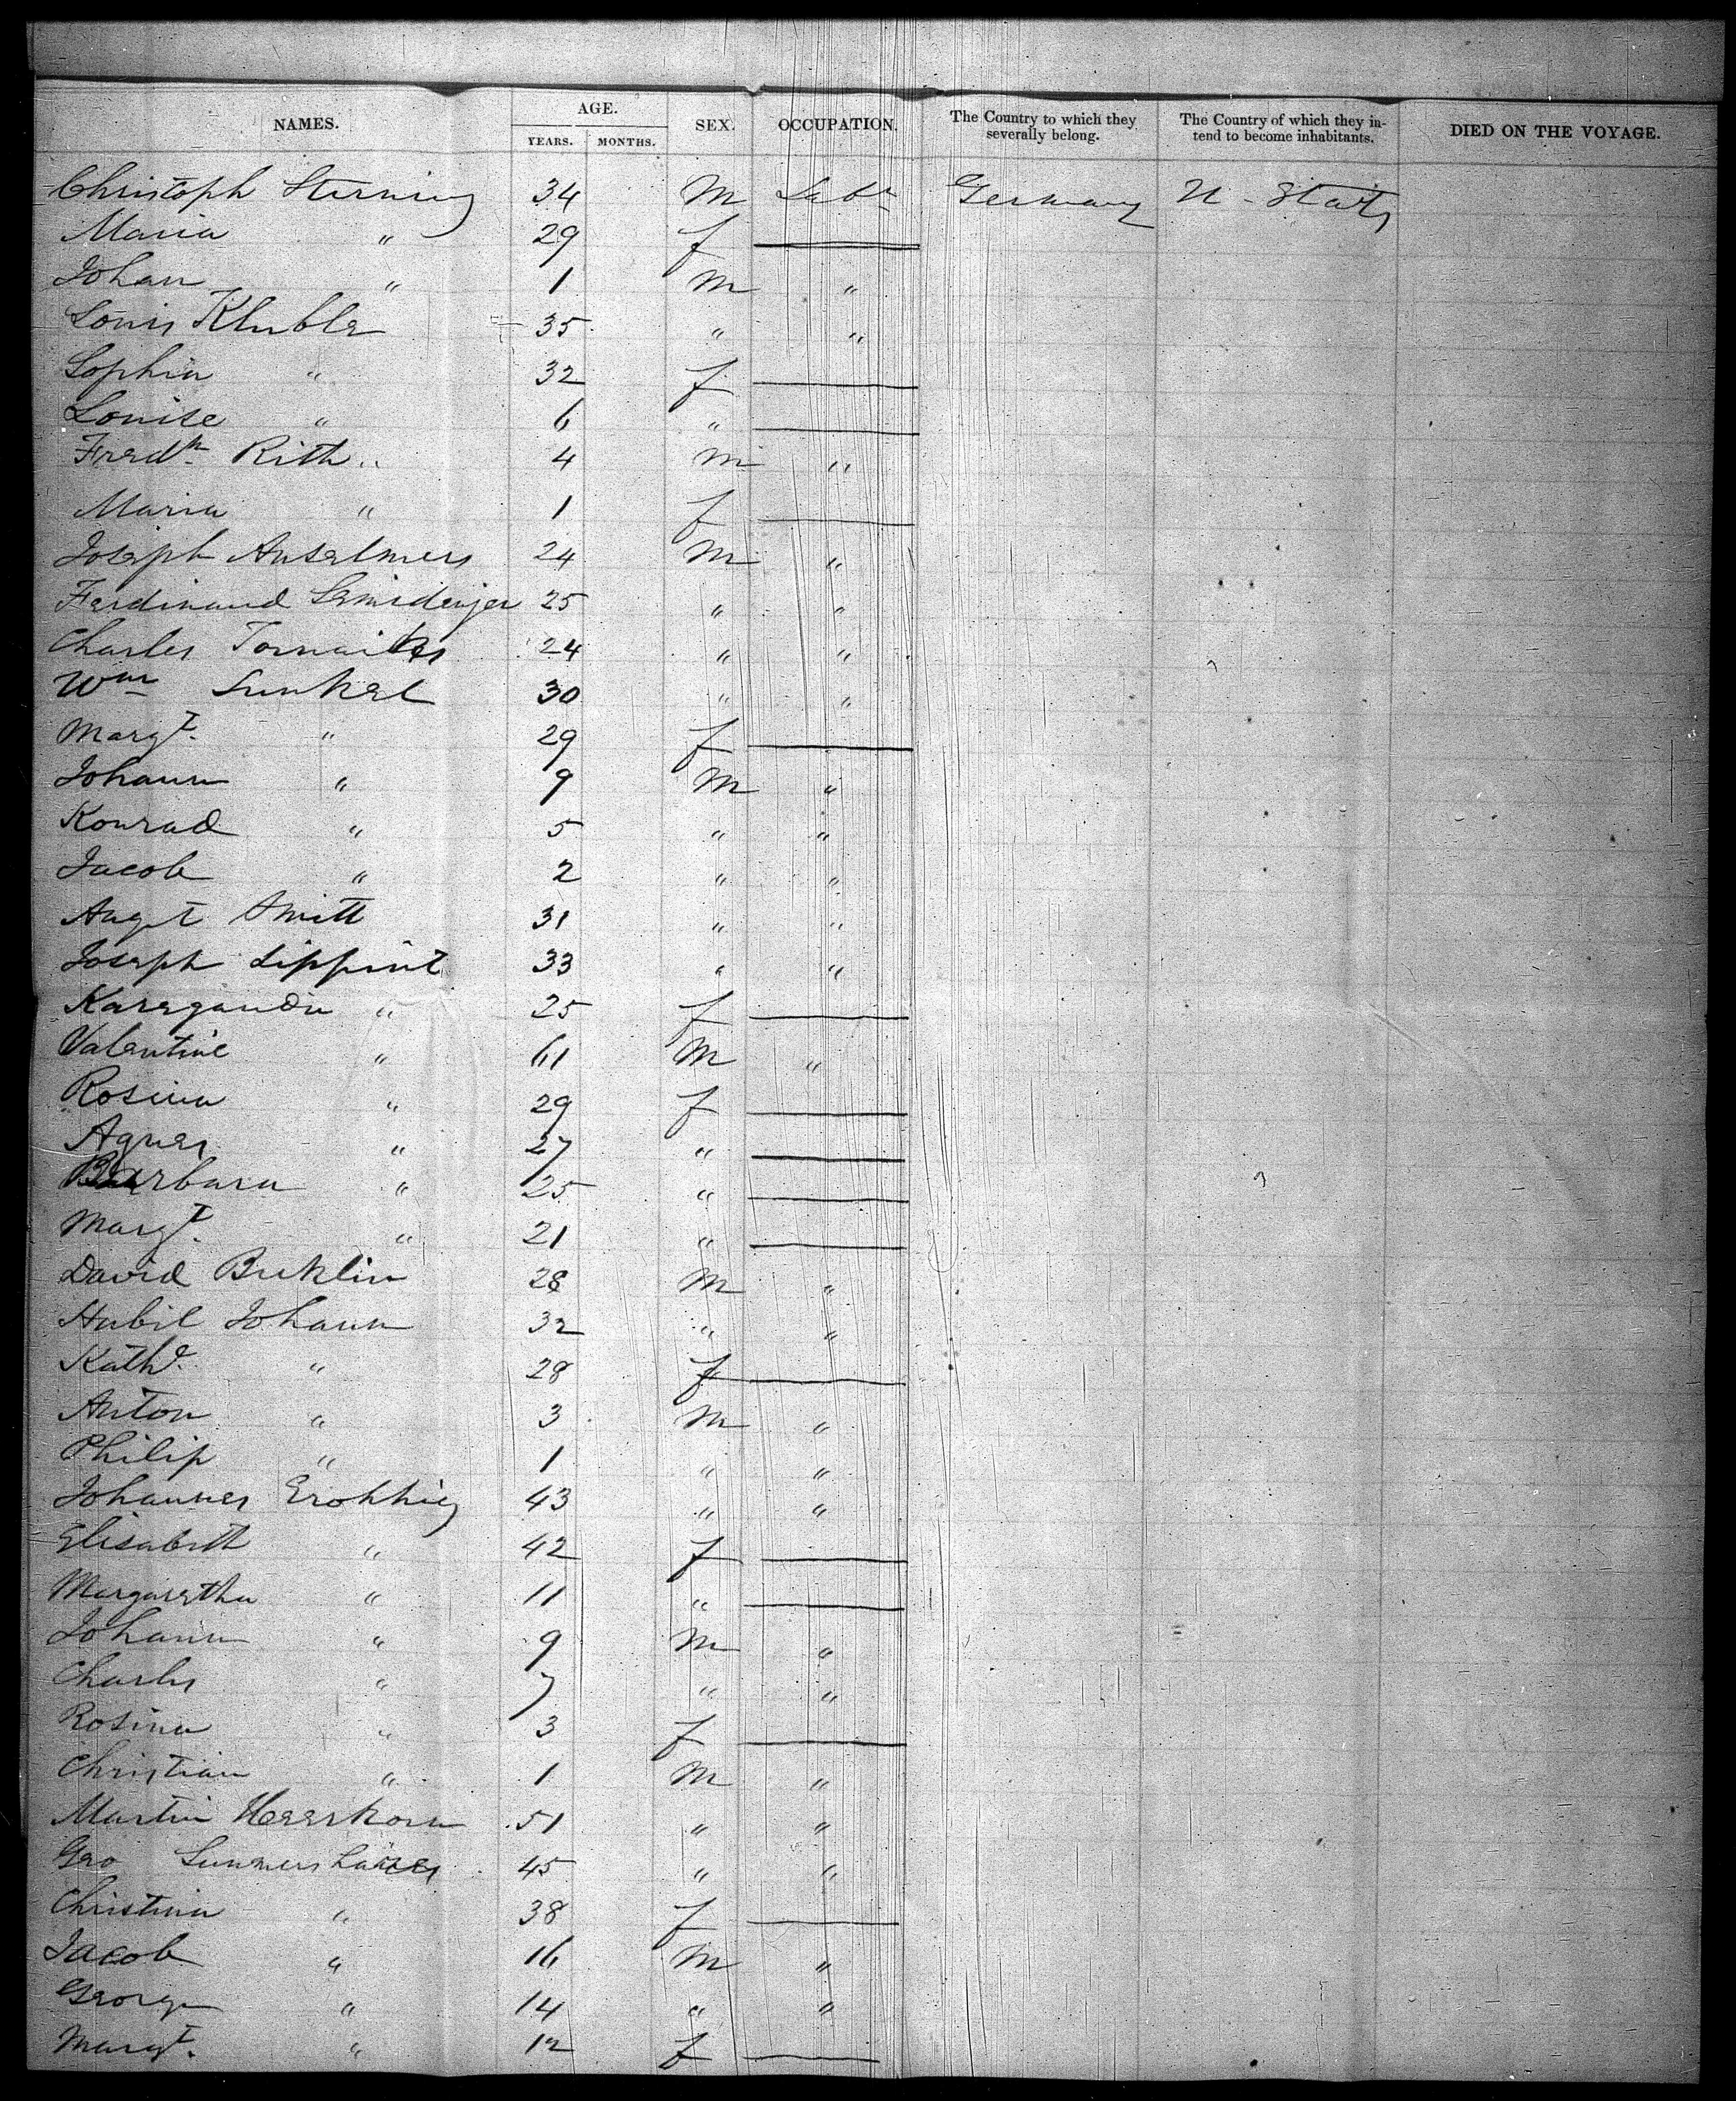 NAMES. AGE. YEARS. MONTHS. SEX. OCCUPATION. The Country to which they severally belong. The Country of which they intend to become inhabitants. DIED ON THE VOYAGE.
Christoph Sterning 34 M Labr Germany U. States
Maria " 29 f
Johan " 1 M "
Louis Klubla 35 " "
Sophia " 32 f
Louise " 6 "
Fredk Rith " 4 m "
Maria " 1 f
Joseph Anselmers 24 M "
Ferdinand 25 " "
Charles 24 " "
Wm Sunkel 30 " "
Margt. " 29 f
Johann " 9 M "
Konrad " 5 " "
Jacob " 2 " "
Augt Smitt 31 " "
Joseph Lippint 33 " "
Karegandu " 25 f
Valentine " 61 M "
Rosina " 29 f
Agnes " 27 "
Barbara " 25 "
Margt. " 21 "
David Buklin 28 M "
Hubil Johann 32 " "
Kathe. " 28 f
Anton " 3 M "
Philip " 1 " "
Johannes Erohhig 43 " "
Elisabeth " 42 f
Margaretha " 11 "
Johann " 9 M "
Charles " 7 " "
Rosina " 3 f
Christian " 1 M "
Martin Heerkorn 51 " "
Geo 45 " "
Christina " 38 f
Jacob " 16 M "
George " 14 " "
Margt. " 12 f